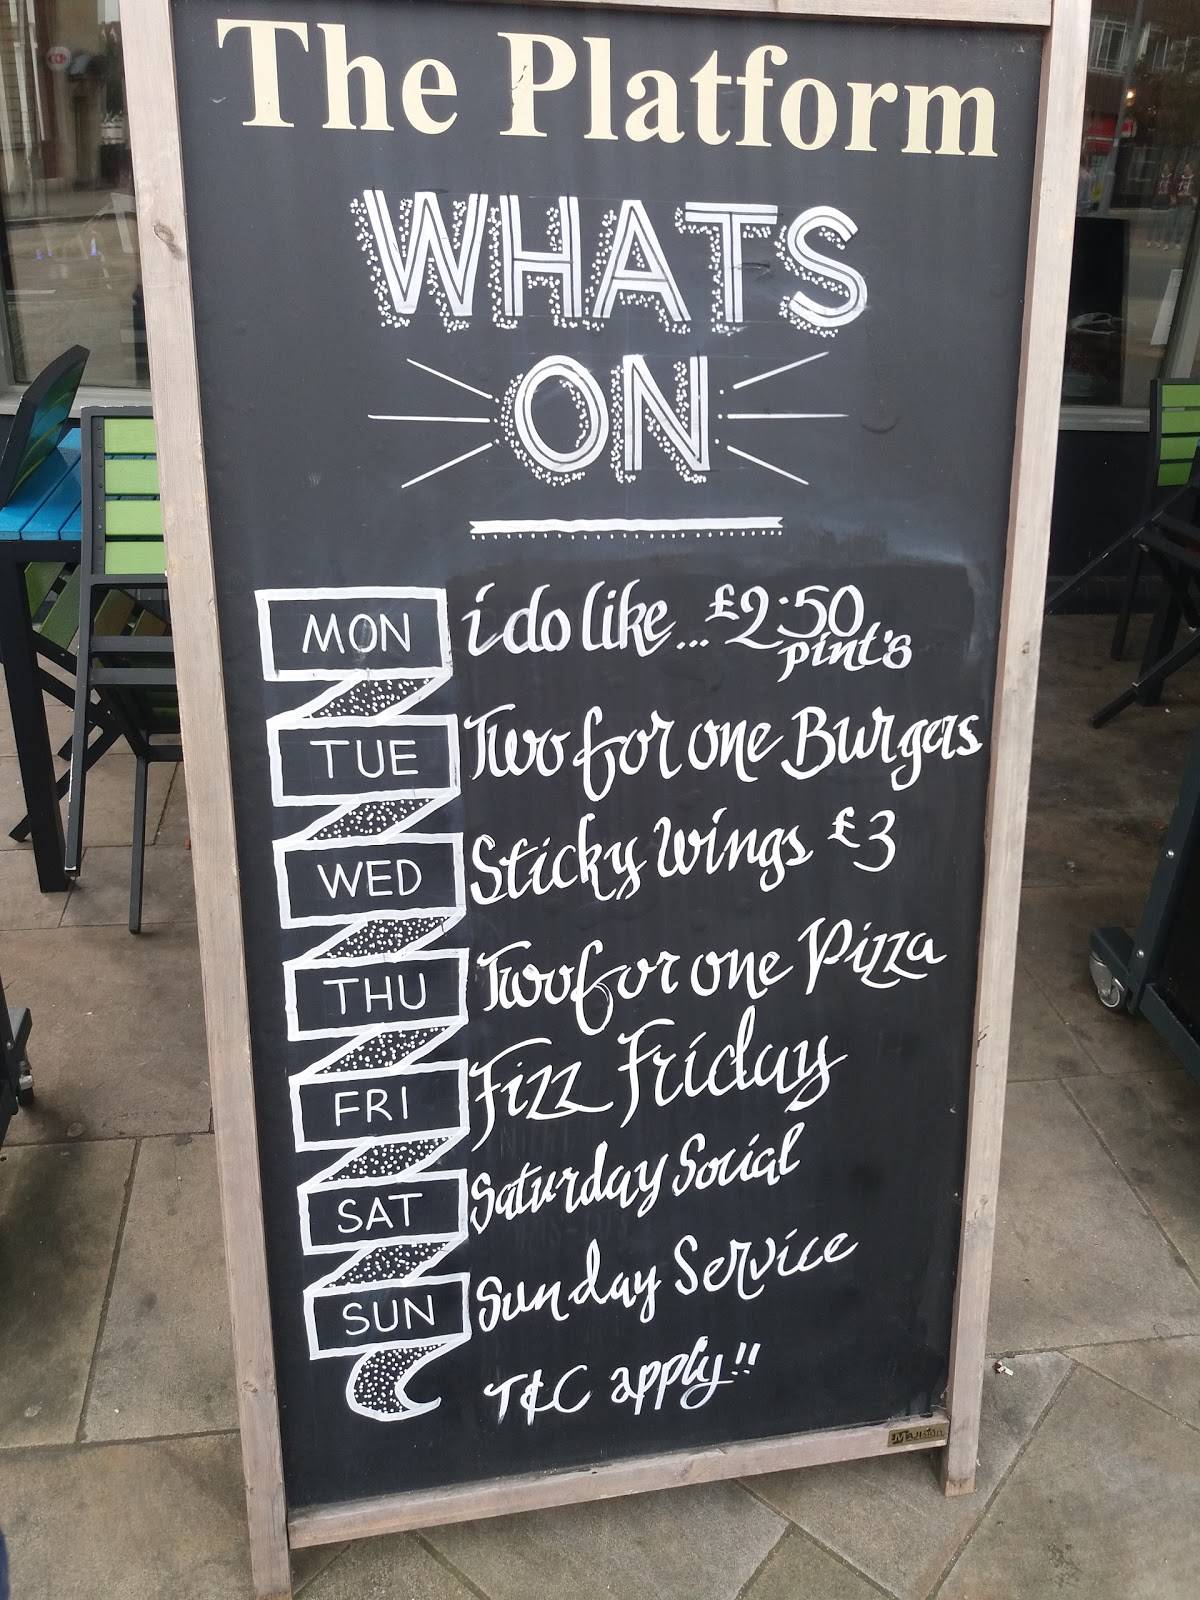 The Platform
WHATS
ON
MON i do like... £2.50
pint's
TUE Two for one Burgers
WED Sticky Wings £3
THU Two for one Pizza
FRI Fizz Friday
SAT Saturday Social
SUN Sunday Service
T&C apply!!